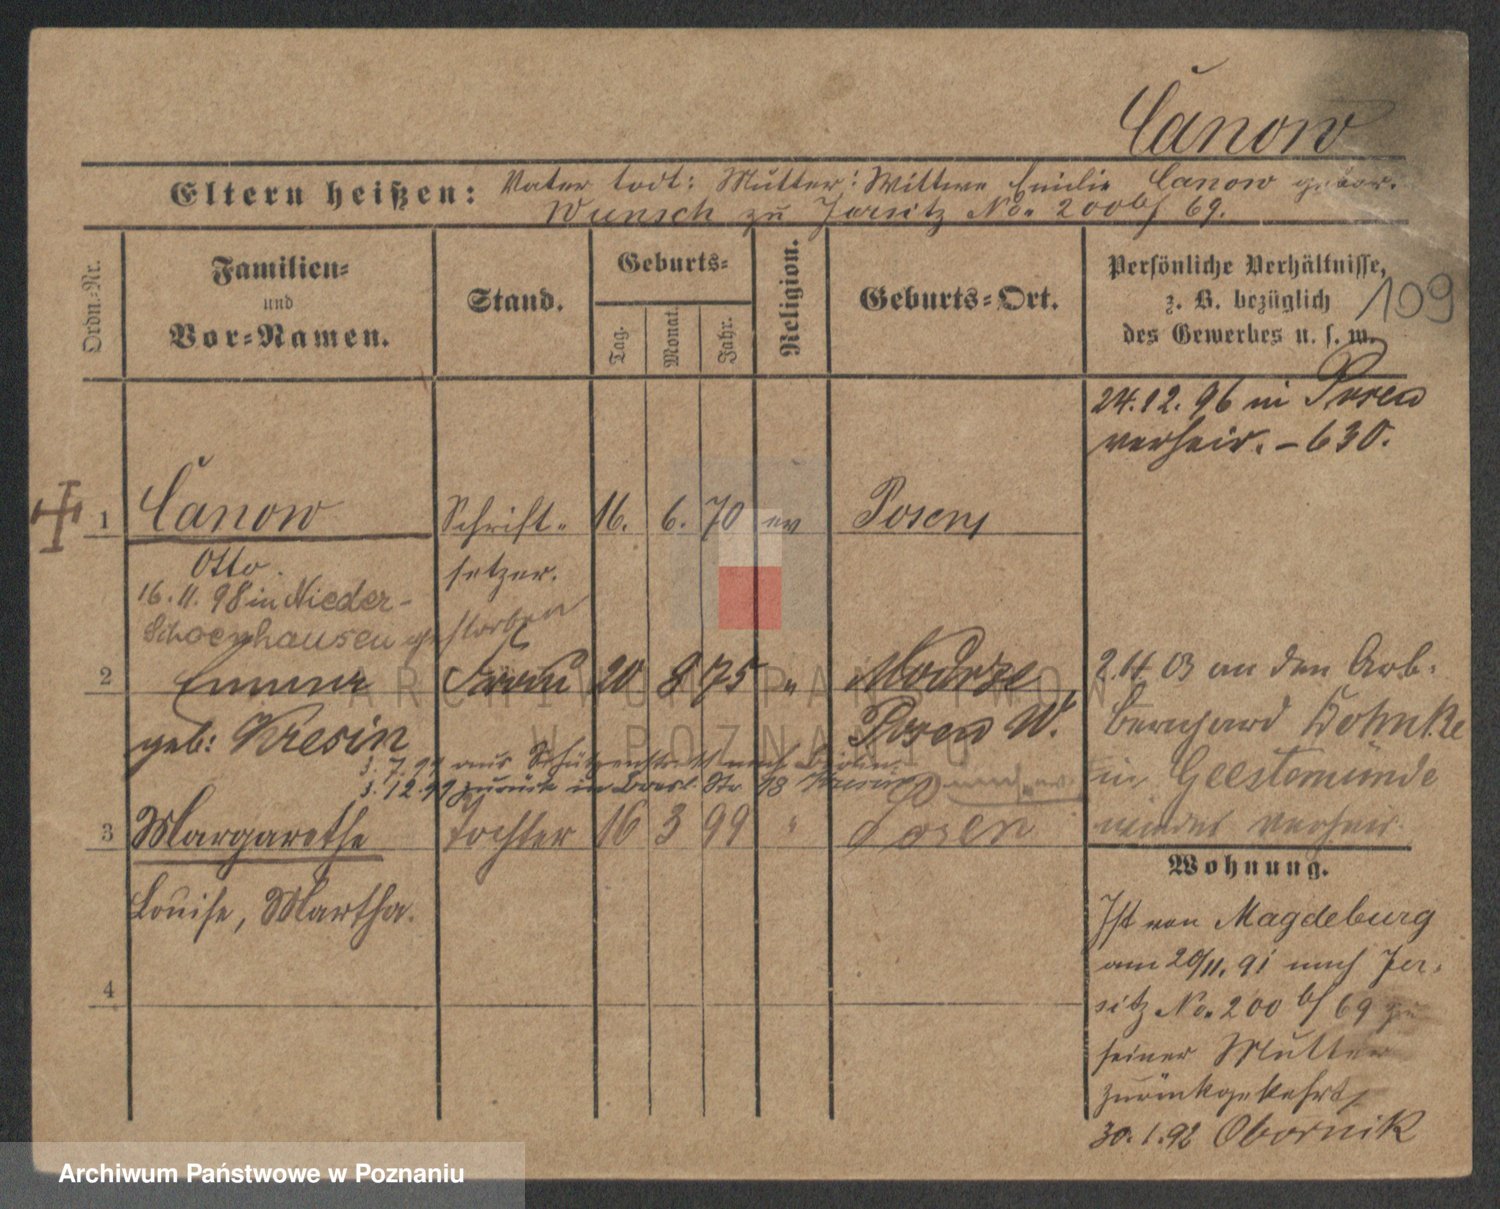 Canow
Eltern heißen: Vater todt: Mutter: Wittwe Emilie Canow gebor.
Wunsch zu Jersitz No. 200 b/ 69.
Ordn.-Nr.
Familien- und Vor-Namen.
Stand.
Geburts-
Tag.
Monat.
Jahr.
Religion.
Geburts-Ort.
Persönliche Verhältnisse,
z. B. bezüglich
des Gewerbes u. s. w.
109
24.12.96 in Posen
verheir. – 630.
1 Canow Schrift- 16. 6. 70 ev Posen
Otto. setzer.
16.11.98 in Nieder-
Schoenhausen gestorben
2 Emma Frau 20 8 75 " Modrze,
geb: Kresin Posen W.
aus nach
zurück in 18
2.11.03 an den Arb.
Bernhard
in Geestemünde
wieder verheir.
3 Margarethe Tochter 16 3 99 " Posen
Louise, Martha.
4
Wohnung.
Ist von Magdeburg
am 20/11.91 nach Jer-
sitz No. 200 b/ 69 zu
seiner Mutter
zurückgekehrt,
30.1.92 Obornik
ARCHIWUM PAŃSTWOWE
W POZNANIU
Archiwum Państwowe w Poznaniu